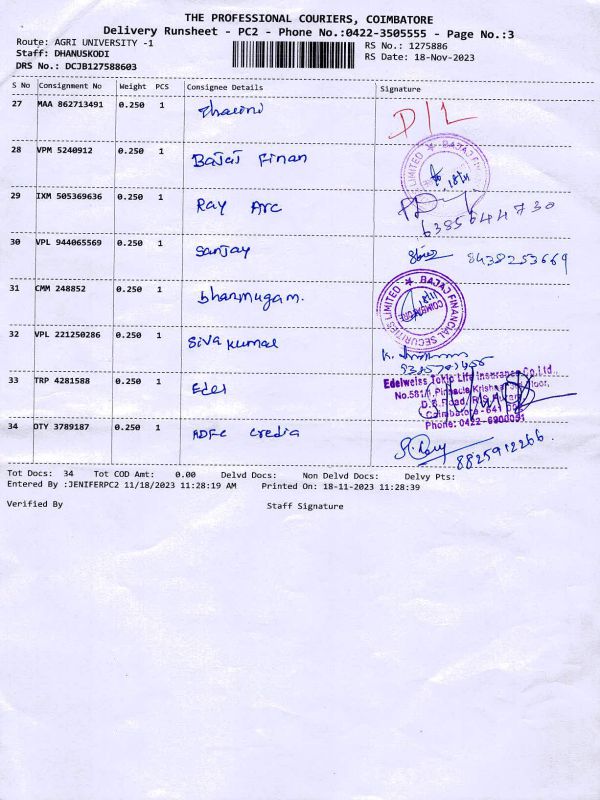 THE PROFESSIONAL COURIERS, COIMBATORE
Delivery Runsheet - PC2 - Phone No.:0422-3505555 - Page No.:3
Route: AGRI UNIVERSITY -1 RS No.: 1275886
Staff: DHANUSKODI RS Date: 18-Nov-2023
DRS No.: DCJB127588603
S No Consignment No Weight PCS Consignee Details Signature
27 MAA 862713491 0.250 1 D/L
28 VPM 5240912 0.250 1 Bajaj Finan
BAJAJ FINANCIAL LIMITED
18/11
29 IXM 505369636 0.250 1 Ray Arc
6385644730
30 VPL 944065569 0.250 1 Sanjay 8438253669
31 CMM 248852 0.250 1 Dharmugam.
BAJAJ FINANCIAL SECURITIES LIMITED
COIMBATORE
18/11
32 VPL 221250286 0.250 1 Siva Kumar
33 TRP 4281588 0.250 1 Edel
Edelweiss Tokio Life Insurance Co.Ltd.,
No.581/1, Pinnacle Krishna, Floor,
D.B.Road, R.S.Puram
Coimbatore-641
Phone: 0422-6900051
34 OTY 3789187 0.250 1 HDFC Credia
8825912266.
Tot Docs: 34 Tot COD Amt: 0.00 Delvd Docs: Non Delvd Docs: Delvy Pts:
Entered By :JENIFERPC2 11/18/2023 11:28:19 AM Printed On: 18-11-2023 11:28:39
Verified By Staff Signature